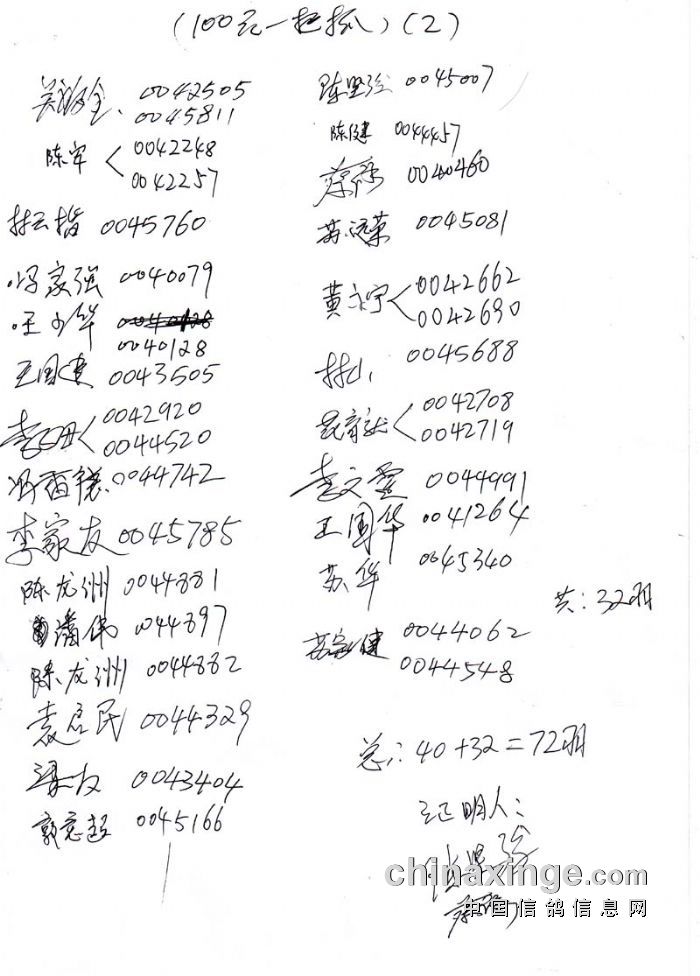 (100元一起抓)(2)
0042505
0045811
陈军 0042248
0042257
林云楷 0045760
冯家强 0040079
王少华
0040128
王国建 0043505
0042920
0044520
冯雷 0044742
李家友 0045785
陈龙洲 0044881
潘伟 0044897
陈龙洲 0044882
袁启民 0044329
梁友 0043404
郭意超 0045166
陈坚强 0045007
陈健 0044457
0040460
苏远荣 0045081
黄永宁 0042662
0042690
林小 0045688
0042708
0042719
李文灵 0044991
王国华 0041264
苏华 0045340
健 0044062
0044548
共:32羽
总:40+32=72羽
证明人:
chinaxinge.com
中国信鸽信息网